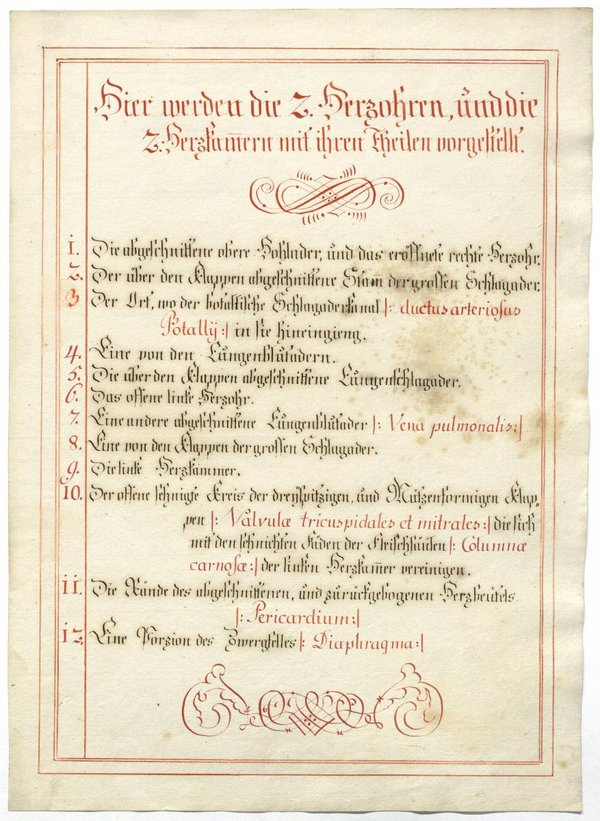 Hier werden die 2. Herzohren, und die
2. Herzkam̅ern mit ihren Theilen vorgestellt.
1. Die abgeschnittene obere Hohlader, und das eröffnete rechte Herzohr.
2. Der über den Klappen abgeschnittene Stam̅ der grossen Schlagader.
3 Der Ort, wo der botallische Schlagaderkanal |: ductus arteriosus
Potallij :| in sie hineingieng.
4. Eine von den Lungenblutadern.
5. Die über den Klappen abgeschnittene Lungenschlagader.
6. Das offene linke Herzohr.
7. Eine andere abgeschnittene Lungenblutader |: Vena pulmonalis :|
8. Eine von den Klappen der grossen Schlagader.
9. Die linke Herzkammer.
10. Der offene sehnige Kreis der dreyspitzigen, und Mützenformigen Klap=
pen |: Valvulæ tricuspidales et mitrales :| die sich
mit den sehnichten Fäden der Fleischsäulen |: Columnæ
carnosæ :| der linken Herzkam̅er vereinigen.
11. Die Rände des abgeschnittenen, und zurückgebogenen Herzbeutels
|: Pericardium :|
12. Eine Porzion des Zwergfelles |: Diaphragma :|